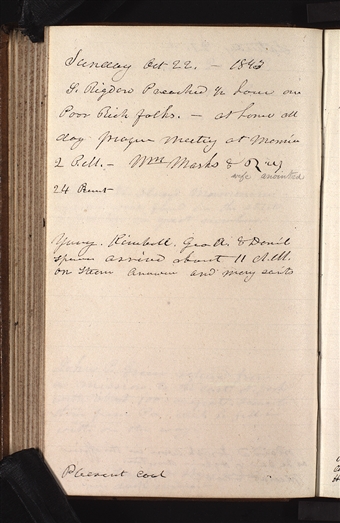 Sunday Oct 22. – 1843
S. Rigdon Preached ½ hour on
Poor Rich folks. – at home all
day prayer meeting at Mansion
2 P.M. – Wm Marks &
wife anointed
24 Pnt
Young. Kimball. Geo A. &
arrived about 11 A.M.
on Steam and many saints
Pleasant cool